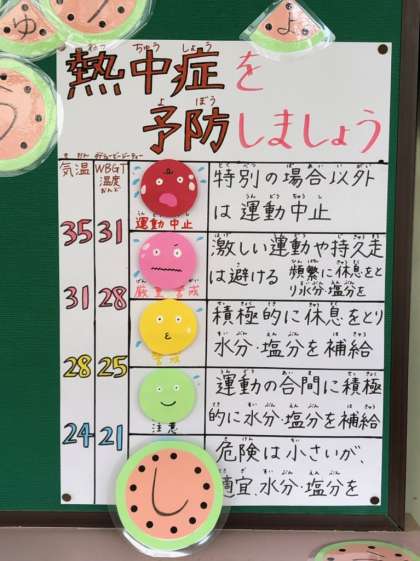 ゅ
う
よ
熱中症を
予防しましょう
気温
WBGT
温度
運動中止
特別の場合以外
は運動中止
35 31
激しい運動や持久走
は避ける 頻繁に休息をと
り水分・塩分を
31 28
積極的に休息をとり
水分・塩分を補給
28 25
注意
運動の合間に積極
的に水分・塩分を補給
24 21
危険は小さいが、
適宜、水分・塩分を
し